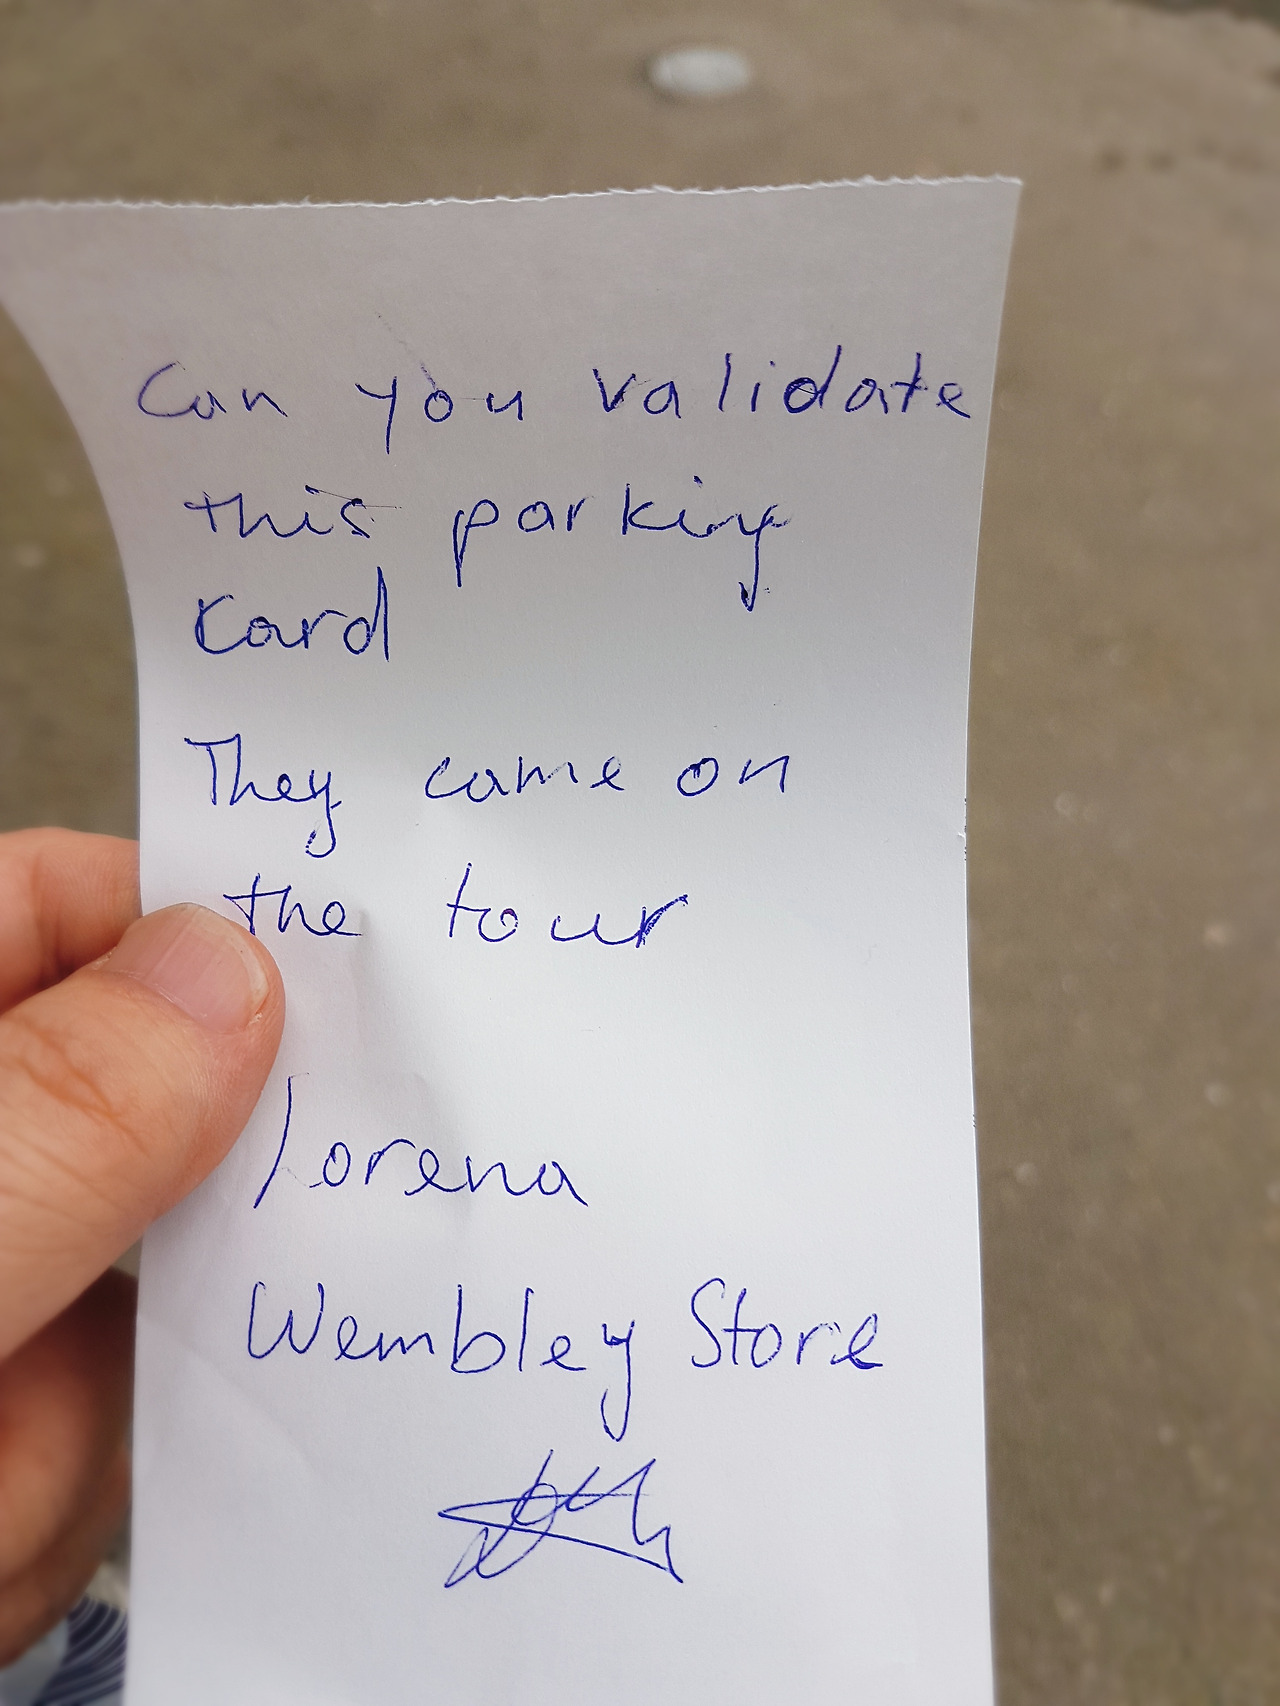 Can you validate
this parking
card
They came on
the tour
Lorena
Wembley Store